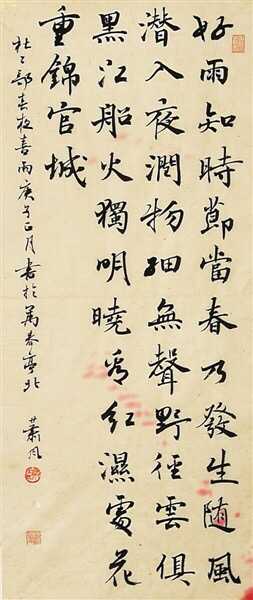 好雨知時節當春乃發生随風
潛入夜潤物細無聲野徑雲俱
黑江船火獨明曉看红濕處花
重錦官城
杜工部春夜喜雨庚子正月書於萬春亭北 蕭风